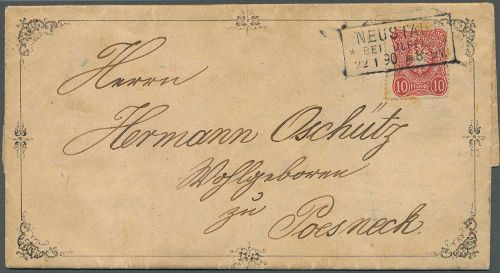 NEUSTA
* BEI
22 1 90 * 8
10 PFENNIG 10
Herrn
Hermann Oschütz
Wohlgeboren
zu
Poesneck.